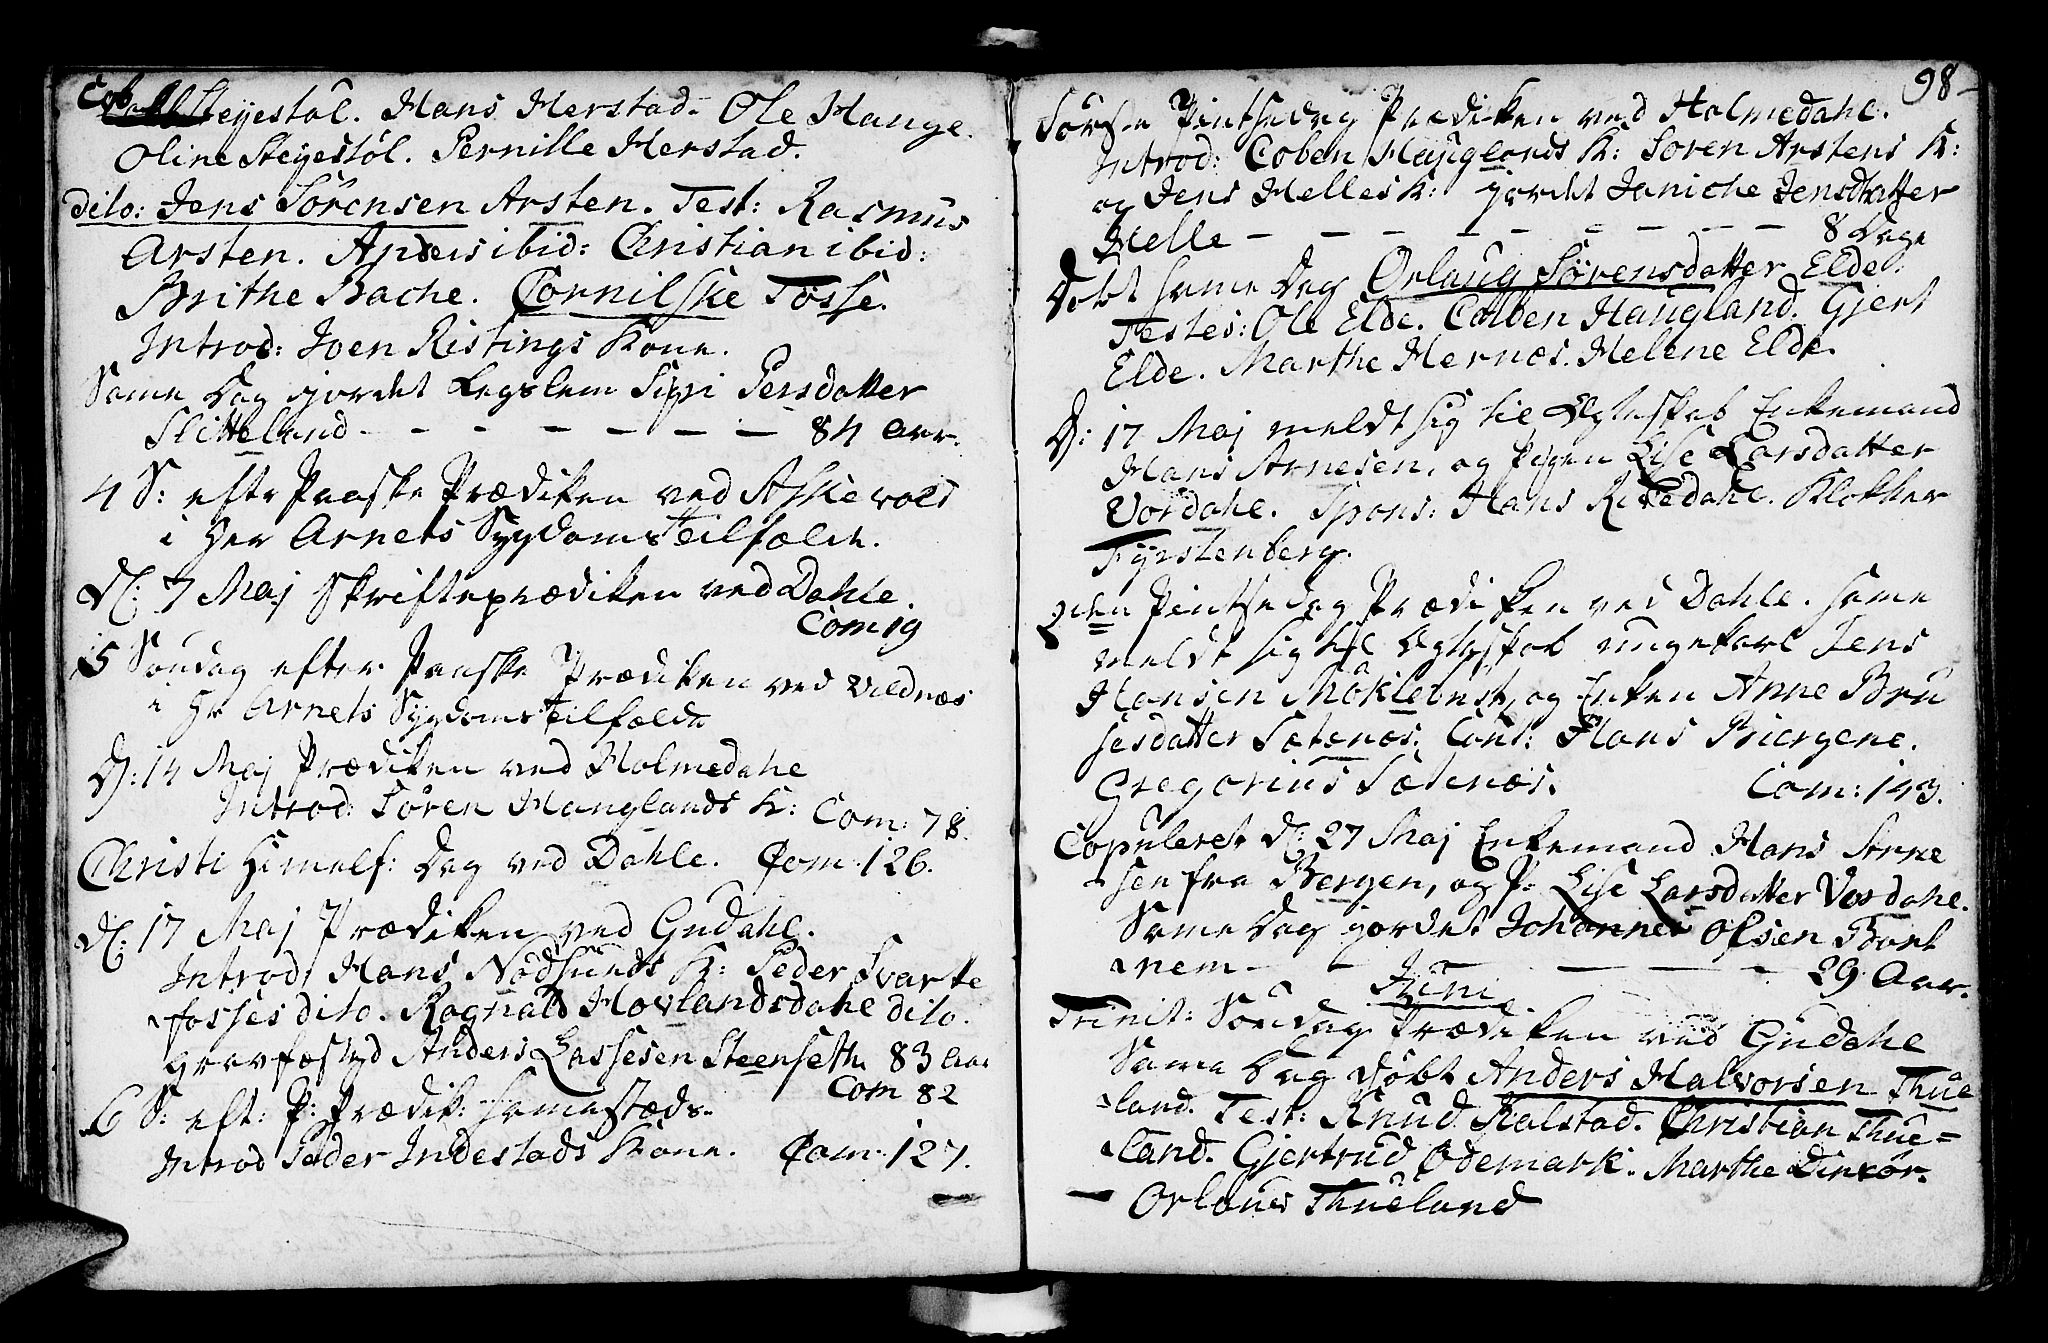 Steyestøl. Hans Herstad. Ole Hauge.
Oline Steyestøl. Pernille Herstad.
dito: Jens Sørensen Arsten. Test: Rasmus
Arsten. Anders ibid: Christian ibid:
Brithe Bache. Cornilske Tosse.
Introd: Joen Ristings Kone.
Same Dag jordet Legslem Sipi Persdatter
Slitteland - - - - - - - 84 Aar.
4 S: efter Paaske Prædiken ved Askevold
i Her Arnets Sygdoms Tilfælde.
D: 7 Maj Skrifteprædiken ved Dahle.
Com 19
5 Søndag efter Paaske Prædiken ved Vildnæs
i Hr Arnets Sygdoms Tilfælde
D: 14 Maj Prædiken ved Holmedahl
Introd: Søren Hauglands K: Com: 78.
Christi Himelf: Dag ved Dahle. Com: 126.
D: 17 Maj Prædiken ved Gudahl.
Introd: Hans Nødsunds K: Peder Svarte
fosses dito. Ragnald Hovlandsdahl dito.
gravfæstyd Anders Lassesen Steenseth 83 Aar
Com 82
6 S: eft: P: Prædik: samestæds.
Introd Peder Indestads Kone. Com: 127.
98-
Første Pintsedag Prædiken ved Holmedahl.
Introd: Coben Hauglands K: Søren Arstens K:
og Jens Helles K: jordet Janiche Jensdatter
Helle - - - - - - - - - 8 Dage
Døbt same Dag Orlaug Sørensdatter Elde.
Testes: Ole Elde. Colben Haugland. Gjert
Elde. Marthe Hernæs. Helene Elde.
D: 17 Maj meldt sig til Ægteskab Enkemand
Hans Arnesen, og Pigen Lise Larsdatter
Vordahl. Spons: Hans Rivedahl. Klokker
Fyrstenberg.
2den Pintsedag Prædiken ved Dahle. same
meldt sig til Ægteskab ungekarl Jens
Hansen og Enken Anne Bru
sesdatter Sætenæs. Caut: Hans Biergene.
Gregorius Sætenæs. Com: 143.
Copuleret D: 27 Maj Enkemand Hans Arne
sen fra Bergen, og P. Lise Larsdatter Vordahl.
Same Dag jordet Johannes Olsen Bort
nem - - - - - 29 Aar.
Juni
Trinit: Søndag Prædiken ved Gudahl
Same Dag døbt Anders Halvorsen Thue
land. Test: Knud Kalstad. Christian Thue=
land. Gjertrud Ødemark. Marthe
Orlaug Thueland